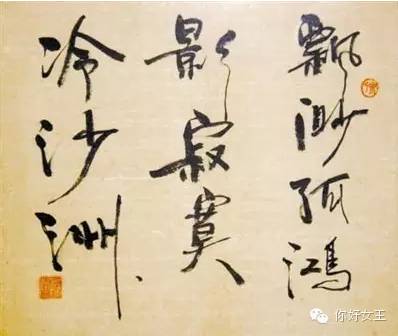 飄渺孤鴻
影寂寞
冷沙洲
你好女王